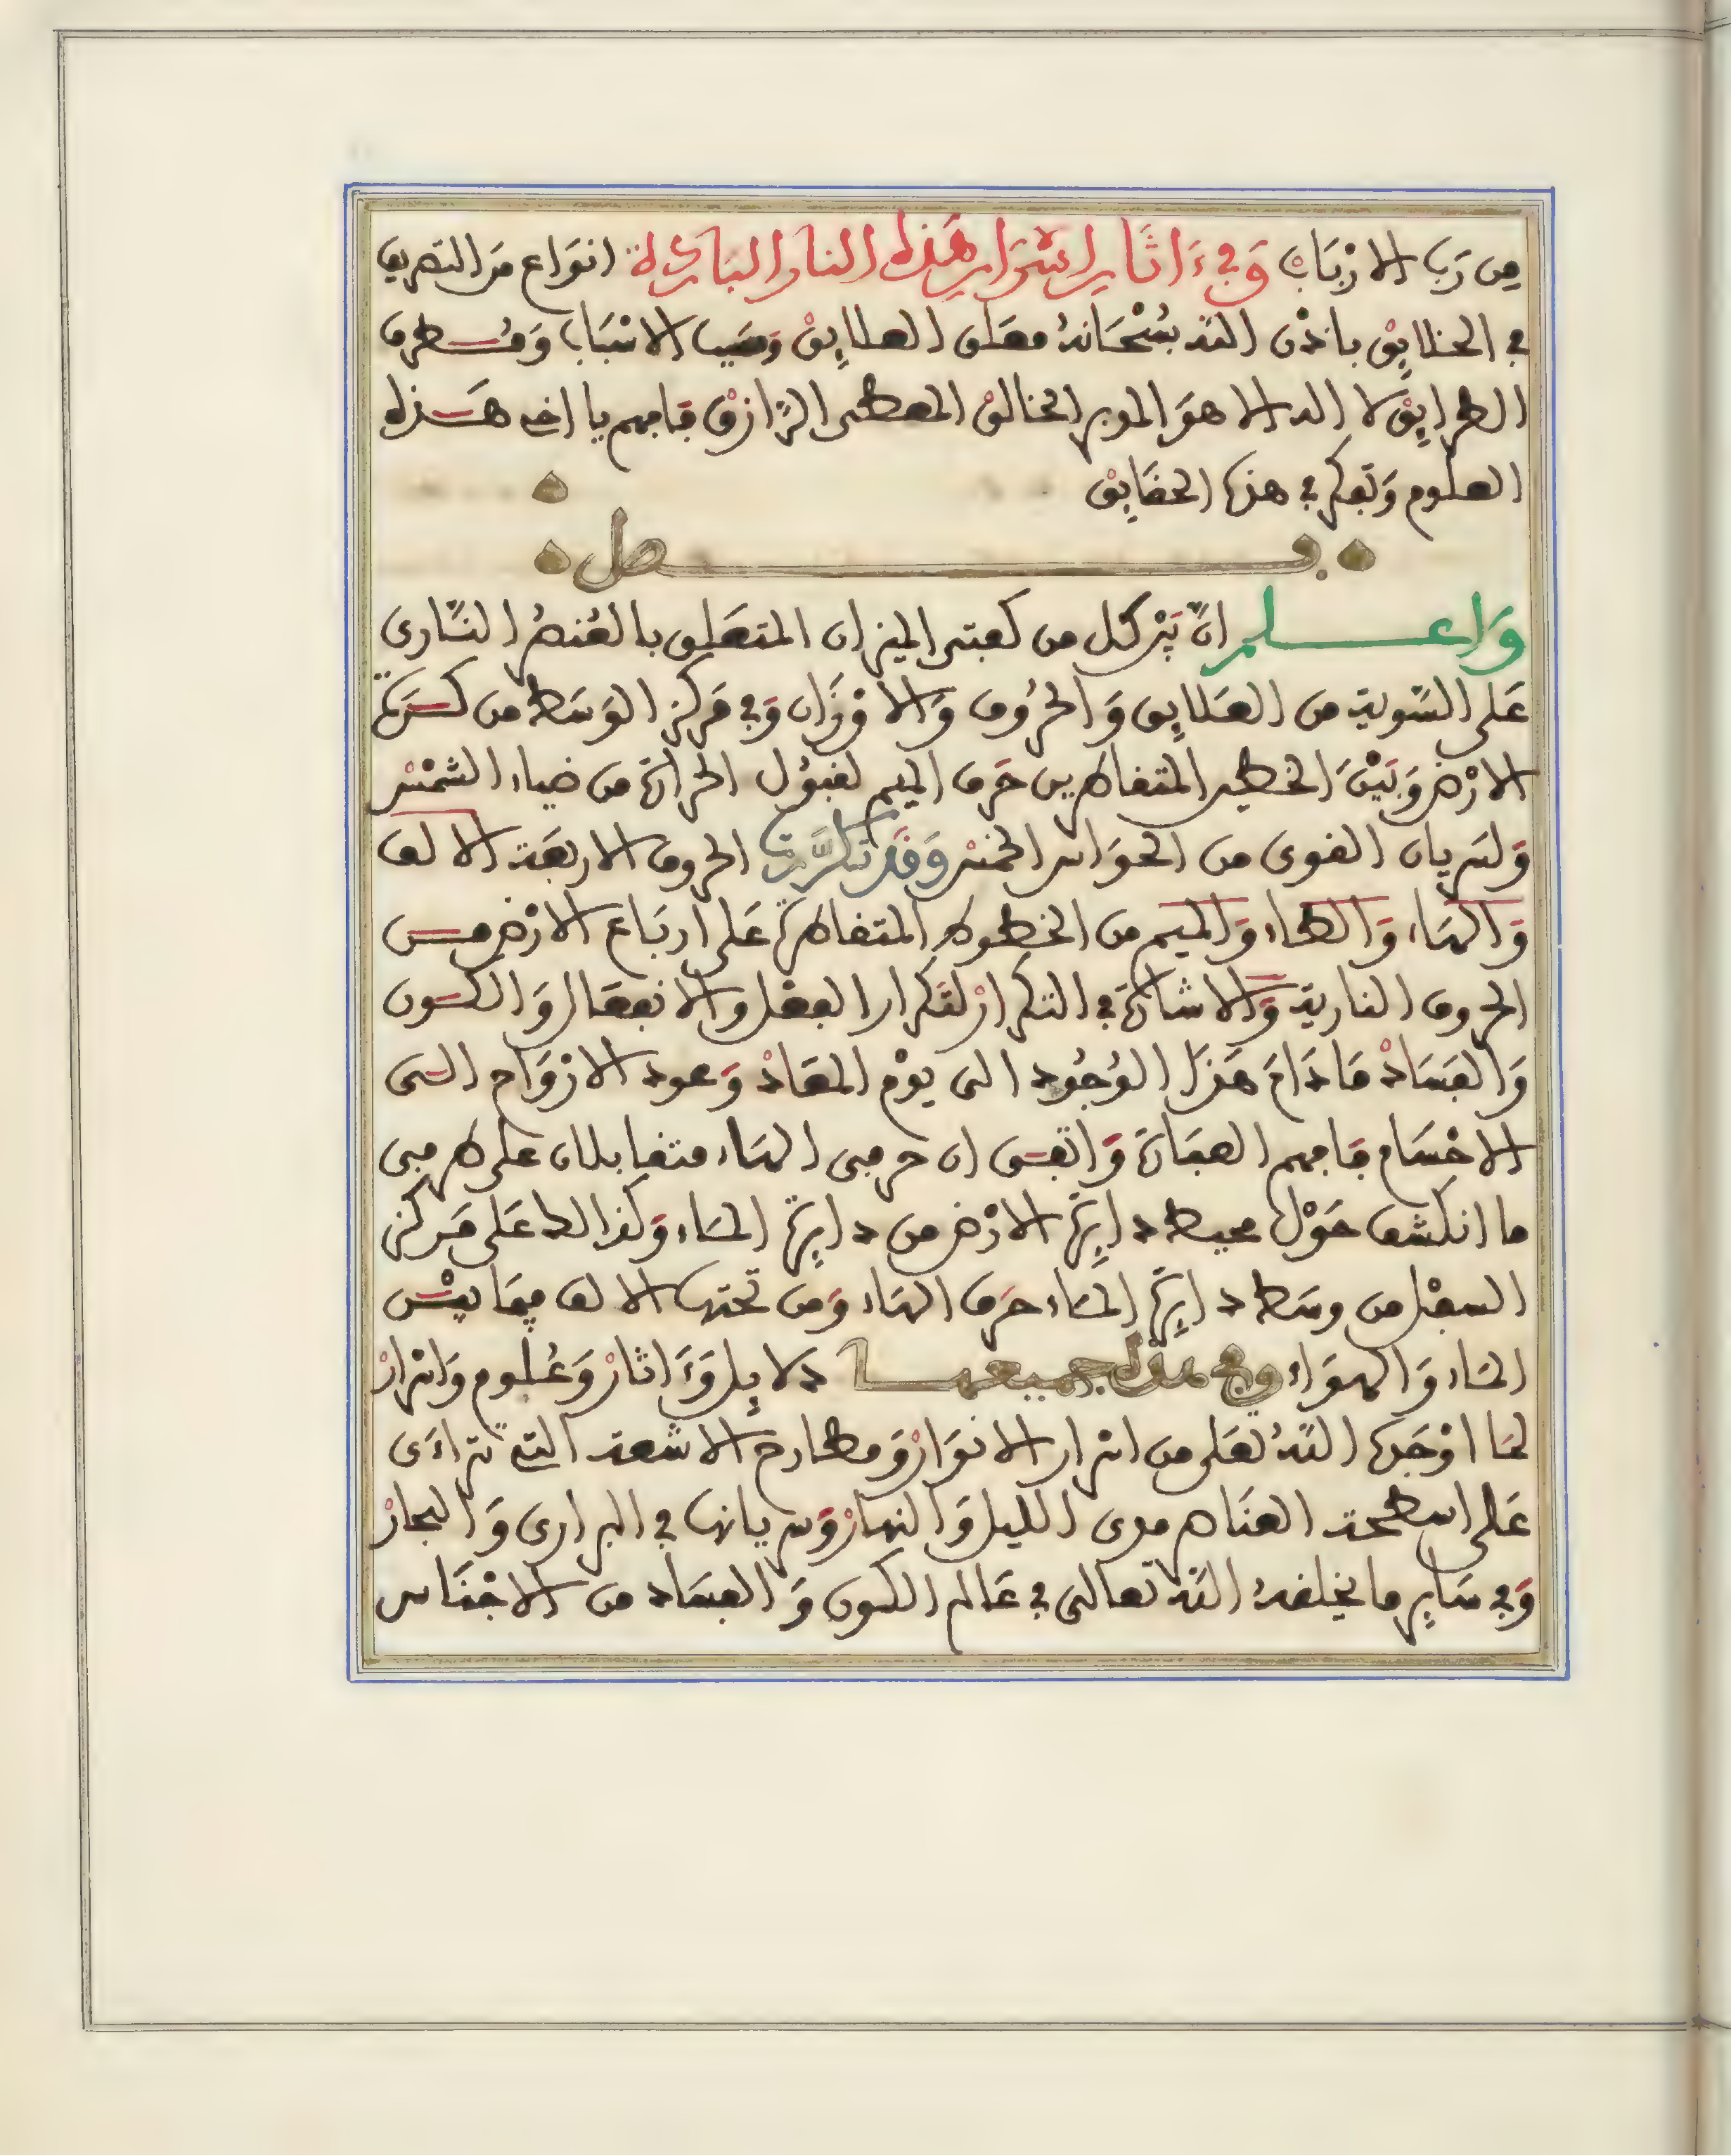 من رَبِّ الارْبَابْ وَفِي ءَاثَارِ اسْرَارِ هَذِهِ النار البَارِدَة انوَاع مَن التصريف
في الخلايِقْ باذْن اللّه سُبْحَانهُ معَلق العلايِقْ وَمسَبب الاسْبَاب وَمُطرق
الطرايِقْ لا اله الا هوَ المدبر الخالقْ المعطى الرَّازقْ فافهم يا اخى هَذه
العلوم وَتفكر في هذه الحقَايِق
فصل
وَاعلم
انَّ بَيْن كل من كفتى الميزان المتعَلق بالعُنصُر النَّارى
عَلى السَّوية من العَلايِق وَالحرُوف وَالاوْزَان وَفي مَركز الوَسَط من كسَرة
الارْض وَبَيْنَ الخطين المتقاطرين حَرف الميم لقبُول الحرارة من ضياء الشمْسْ
وَلسَريان القوى من الحوَاس الخمْسْ وَقَد تكرَّرت الحروف الاربعَة الالف
وَالهَاء وَالطاء وَالميم من الخطوط المتقاطرة عَلى اربَاع الارْض مس
الحروف النارية وَالاشارة في التكرارْ لتَكرار الفعْل والانفعَال وَالكسون
وَالفسَادْ مَا دَامَ هَذَا الوُجُود الى يوْم المعَادْ وَعود الارْوَاح السى
الاجْسَام فافهم العبَارة وَاتقسى ان حرفى الهَاء متقابلان على طرفى
ما انكشف حَوْل محيط دايِرَة الارْض من دايِرَة المَاء وَكذالك عَلى مَركز
السفْل من وسَط دايِرَة المَاء حَرف الهَاء وَمن تحتها الالف فيمَا بيْسْن
المَاء وَالهوَاء وفى هذه جميعها دلايِل وَءَاثارْ وَعُلوم وَاسْرارْ
لمَا اوْجَدَه اللّهُ تعَلى من اسْرار الانوَارْ وَمطارح الاشعة التى تتراءَى
عَلى اسطحة العنَاصر مدى الليل وَالنهارْ وَسريانها في البرارى وَالبحارْ
وَفي سَايِر ما يخلقهُ اللّه تعالى في عَالم الكون وَالفسَاد من الاجْنَاس